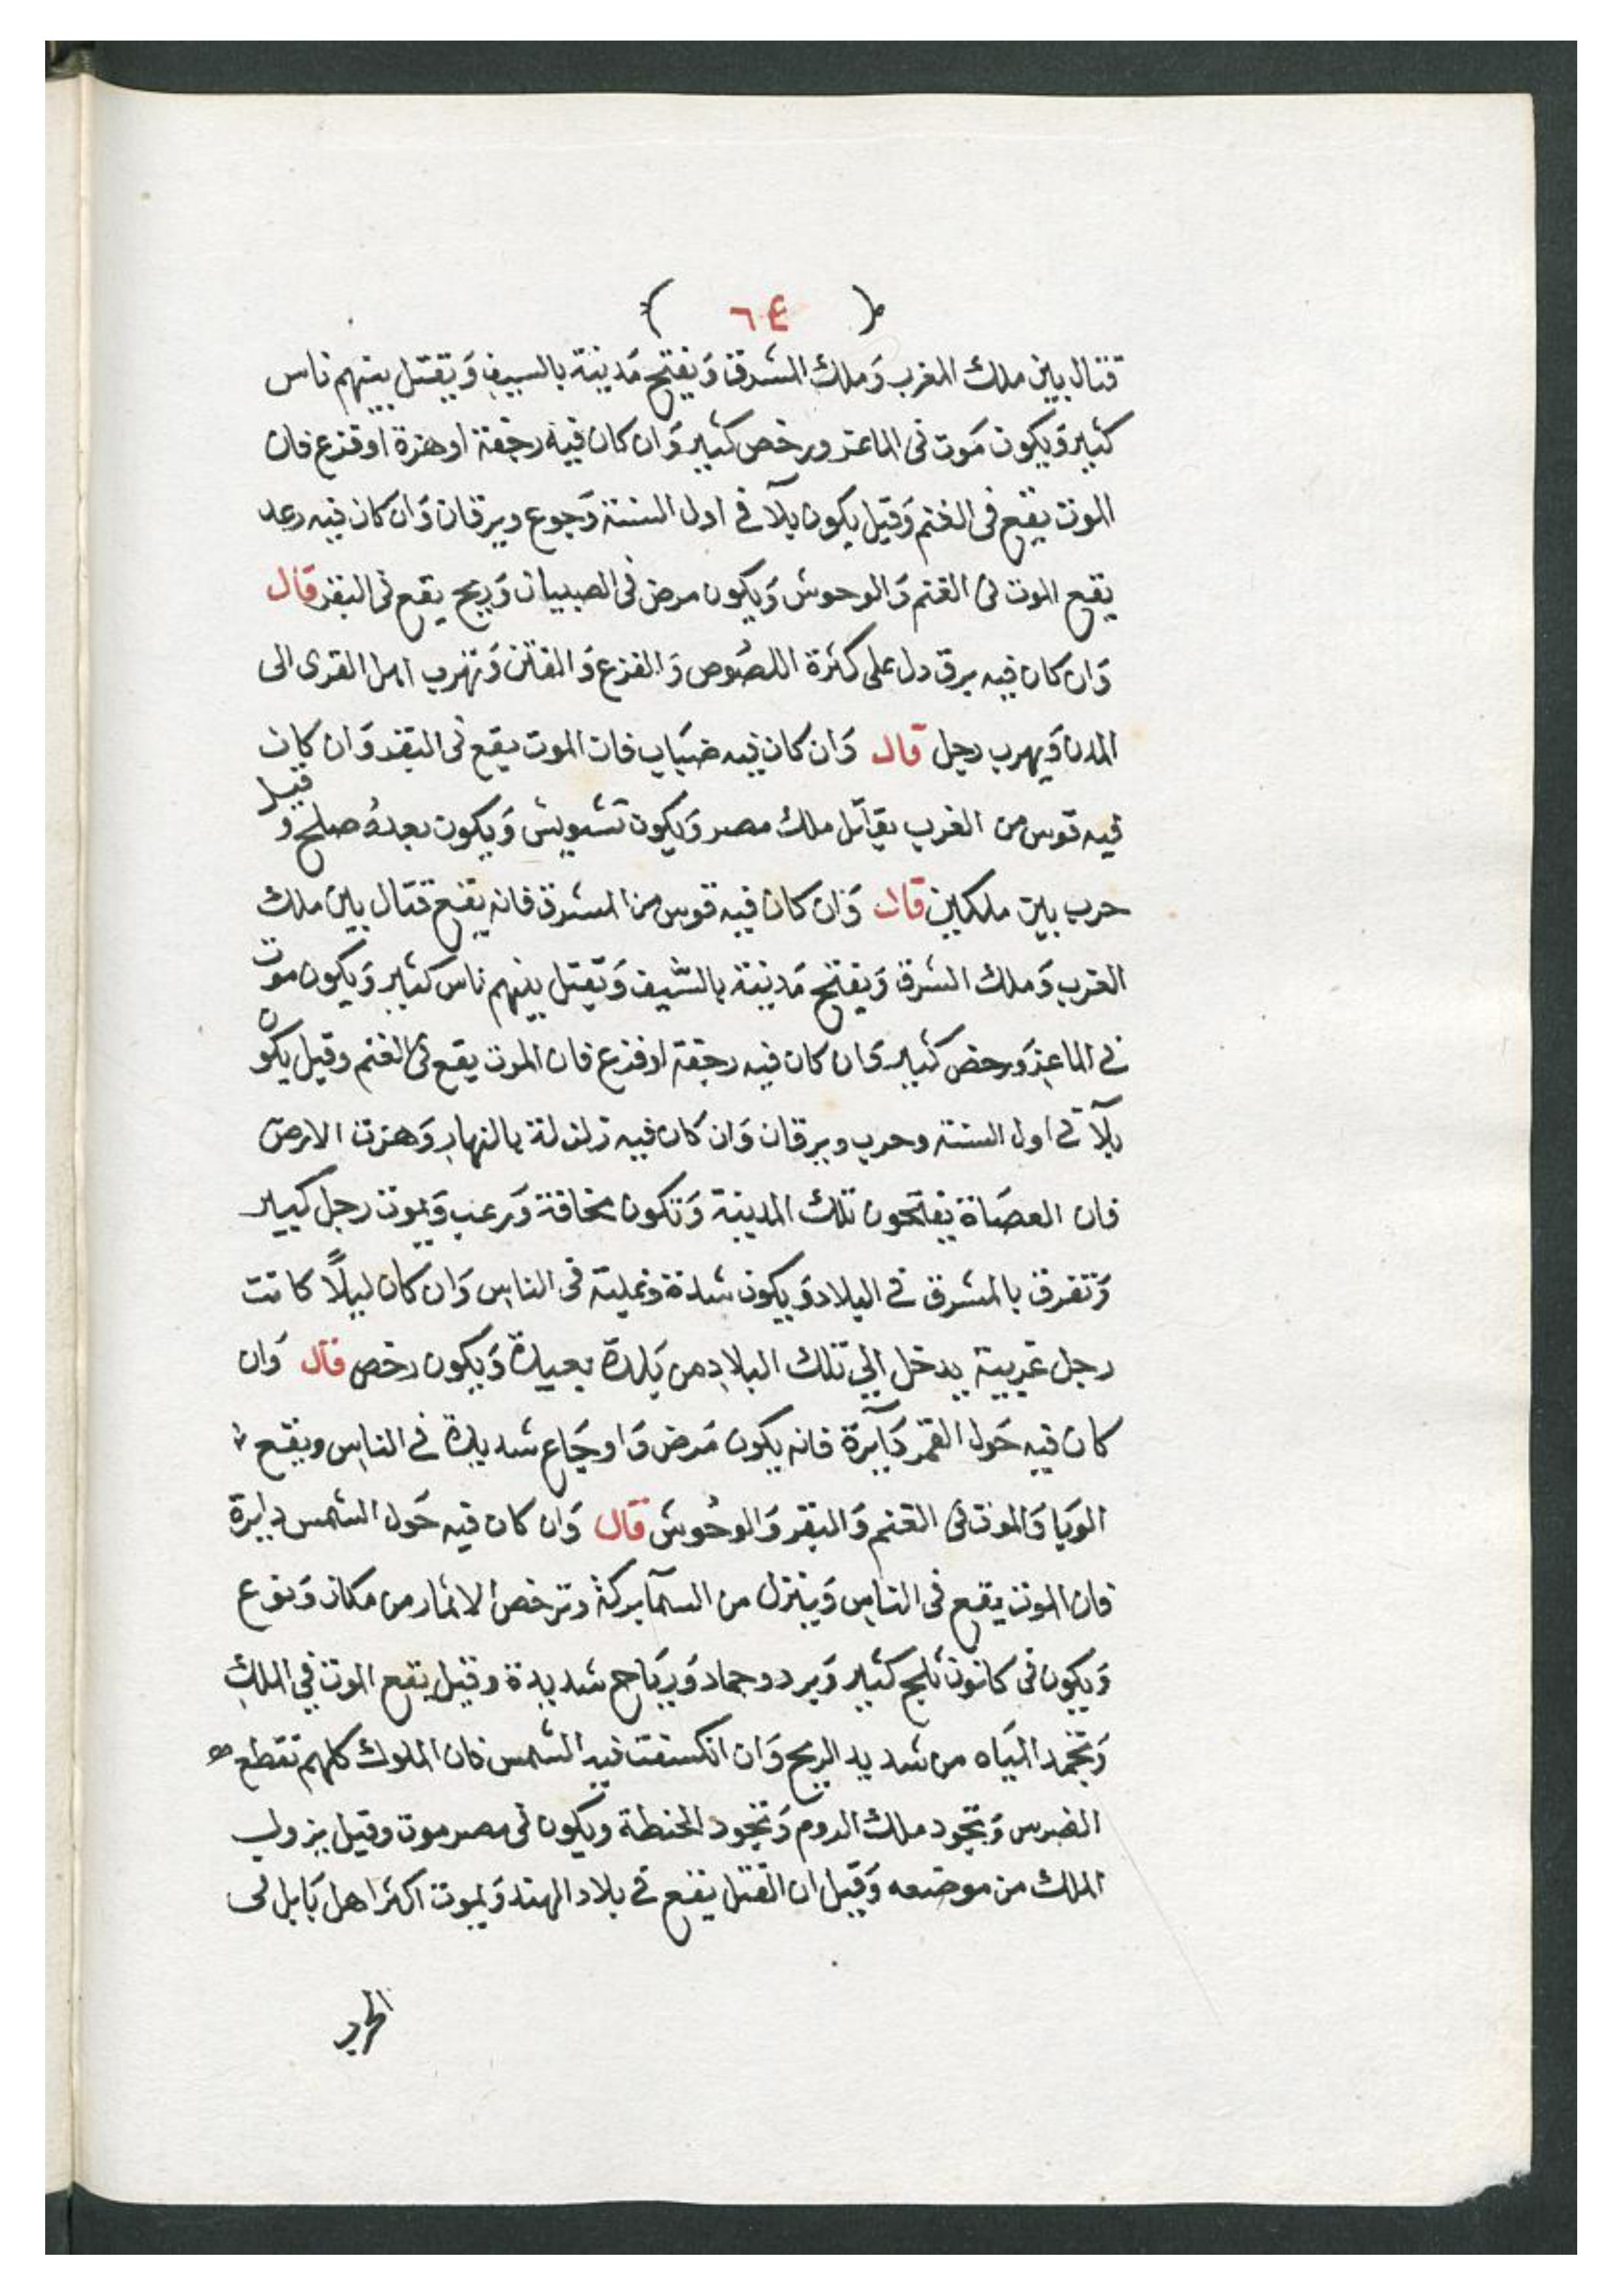 ( ٦٤ )
قتال بين ملك المغرب وَملك الشرق وَيفتح مَدينة بالسيف وَيقتل بينهم ناس
كثير وَيكون مَوت فى الماعز ورخص كثير وَان كان فيه رجفة او هزة او فزع فان
الموت يقع فى الغنم وَقيل يكون بلآ في اول السنة وَجوع ويرقان وَان كان فيه رعد
يقع الموت فى الغنم وَالوحوش وَيكون مرض فى الصبيان وَريح يقع فى البقر قال
وَان كان فيه برق دل على كثرة اللصُوص وَالفزع وَالفتن وَتهرب اهل القرى الى
المدن وَيهرب رجل قال وَان كان فيه ضبَاب فان الموت يقع فى البقر وَان كان
فيه قوس من الغرب يقاتل ملك مصر وَيكون تشويش وَيكون بعدهُ صلح وقيل
حرب بين ملكين قال وَان كان فيه قوس من المشرق فانه يقع قتال بين ملك
الغرب وَملك الشرق وَيفتح مَدينة بالسّيف وَتقتل بينهم ناس كثير وَيكون موت
في الماعز وَرخص كثير وَان كان فيه رجفة او فزع فان الموت يقع فى الغنم وقيل يكون
بلآ في اول السنة وحرب ويرقان وَان كان فيه زلزلة بالنهار وَهزت الارض
فان العصَاة يفتحون تلك المدينة وَتكون مخافة وَرعب وَيموت رجل كبير
وَتفرق بالمشرق في البلاد وَيكون شدة وغلبة فى الناس وَان كان ليلًا كانت
رجل غريبة يدخل الي تلك البلاد من بَلدة بعيدة وَيكون رخص قال وَان
كان فيه حَول القمر دَآيرَة فانه يكون مَرض وَاوجَاع شديدة في الناس ويقع
الوَبا وَالموت فى الغنم وَالبقر وَالوحُوش قال وَان كان فيه حَول الشمس دايرة
فان الموت يقع فى الناس وَينزل من السمآ بركة وترخص الاثمار من مكان وَنوع
وَيكون فى كانون ثلج كثير وَبرد وجماد وَريَاح شديدة وقيل يقع الموت في الملك
وَتجمد الميَاه من شديد الريح وَان انكسفت فيه الشمس فان الملوك كلهم تقطع
الضرس وَتجود ملك الروم وَتجود الحنطة ويكون فى مصر موت وقيل يزول
الملك من موضعه وَقيل ان القتل يقع في بلاد الهند وَيموت اكثر اهل بَابل فى